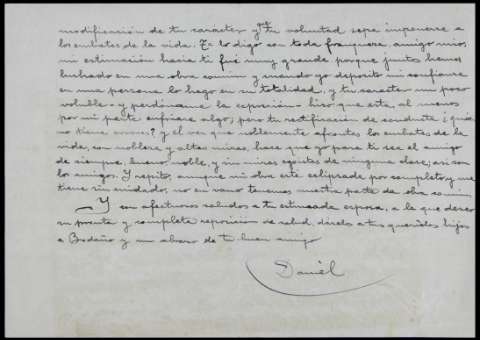 modificación de tu caracter y que tu voluntad sepa imponerse a
los embates de la vida. Te lo digo con toda franqueza, amigo mio,
mi estimación hacia ti fué muy grande porque juntos hemos
luchado en una obra comun y cuando yo deposito mi confianza
en una persona lo hago en su totalidad, y tu caracter un poco
voluble - y perdóname la exposición - hizo que esta, al menos
por mi parte enfriase algo; pero tu rectificación de conducta ¿quién
no tiene errores? y el ver que noblemente afrontas los embates de la
vida, con nobleza y altas miras, hace que yo para ti sea el amigo
de siempre, bueno, noble, y sin miras egoistas de ninguna clase; asi son
los amigos. Y repito, aunque mi obra esté eclipsada por completo, y me
tiene sin cuidado, no en vano tenemos nuestra parte de obra comun.
Y con afectuosos saludos a tu estimada esposa, a la que deseo
su pronta y completa reposicion de salud, dáselos a tus queridos hijos
a Bedaño y un abrazo de tu buen amigo
Daniel